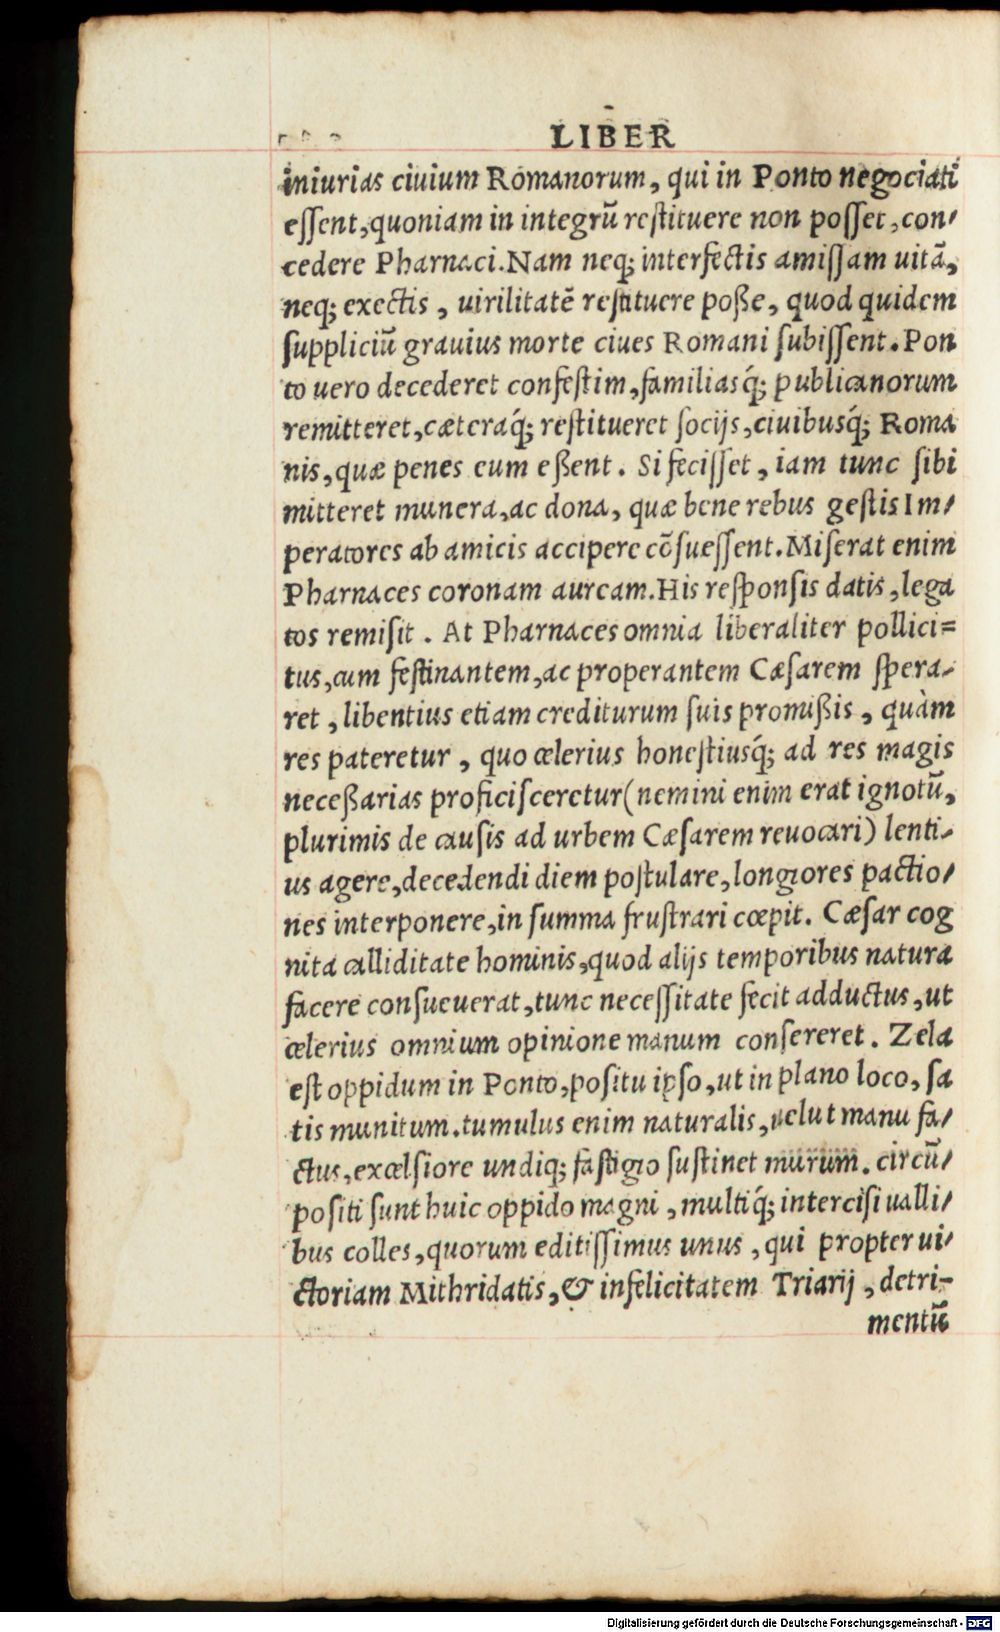 LIBER
iniurias ciuium Romanorum, qui in Ponto negociati
essent, quoniam in integrũ restituere non posset, con-
cedere Pharnaci. Nam neq; interfectis amissam uitã,
neq; exectis, uirilitatẽ restituere poße, quod quidem
suppliciũ grauius morte ciues Romani subissent. Pon
to uero decederet confestim, familiasq́; publicanorum
remitteret, cæteraq́; restitueret socijs, ciuibusq́; Roma
nis, quæ penes eum eßent. Si fecisset, iam tunc sibi
mitteret munera, ac dona, quæ bene rebus gestis Im-
peratores ab amicis accipere cõsuessent. Miserat enim
Pharnaces coronam auream. His responsis datis, lega
tos remisit. At Pharnaces omnia liberaliter pollici=
tus, cum festinantem, ac properantem Cæsarem spera-
ret, libentius etiam crediturum suis promißis, quàm
res pateretur, quo celerius honestiusq́; ad res magis
neceßarias proficisceretur (nemini enim erat ignotũ,
plurimis de causis ad urbem Cæsarem reuocari) lenti-
us agere, decedendi diem postulare, longiores pactio-
nes interponere, in summa frustrari cœpit. Cæsar cog
nita calliditate hominis, quod alijs temporibus natura
facere consueuerat, tunc necessitate fecit adductus, ut
celerius omnium opinione manum consereret. Zela
est oppidum in Ponto, positu ipso, ut in plano loco, sa
tis munitum. tumulus enim naturalis, uelut manu fa-
ctus, excelsiore undiq; fastigio sustinet murum. circũ-
positi sunt huic oppido magni, multiq́; intercisi ualli-
bus colles, quorum editissimus unus, qui propter ui-
ctoriam Mithridatis, & infelicitatem Triarij, detri-
mentũ
Digitalisierung gefördert durch die Deutsche Forschungsgemeinschaft - DFG